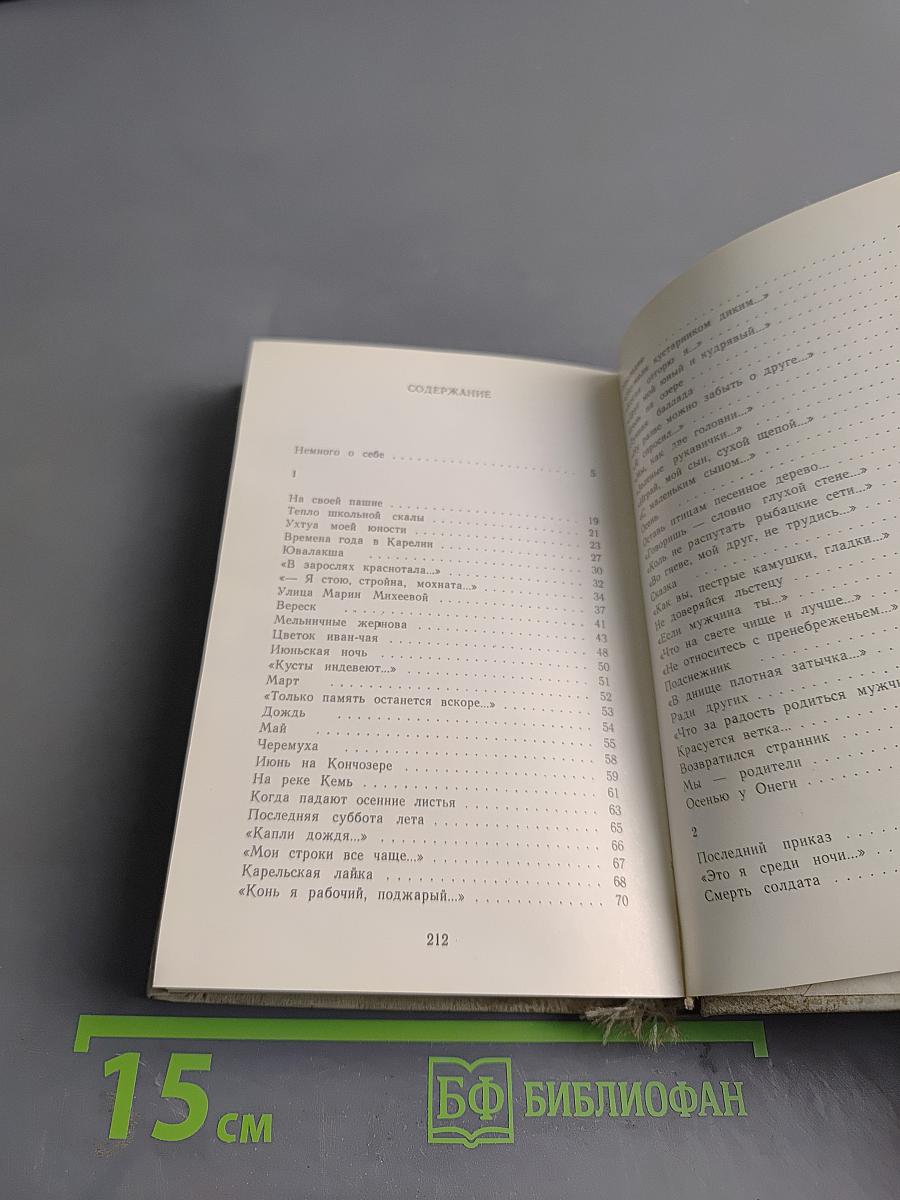 СОДЕРЖАНИЕ
Немного о себе . . . . . . . . . . . . . . . . 5
1
На своей пашне . . . . . . . . . . . . . . . . 19
Тепло школьной скалы . . . . . . . . . . . . . 21
Ухтуа моей юности . . . . . . . . . . . . . . 23
Времена года в Карелии . . . . . . . . . . . . 27
Ювалакша . . . . . . . . . . . . . . . . . . 30
«В зарослях краснотала...» . . . . . . . . . . 32
«— Я стою, стройна, мохната...» . . . . . . . 34
Улица Марии Михеевой . . . . . . . . . . . . . 37
Вереск . . . . . . . . . . . . . . . . . . . 41
Мельничные жернова . . . . . . . . . . . . . . 43
Цветок иван-чая . . . . . . . . . . . . . . . 48
Июньская ночь . . . . . . . . . . . . . . . . 50
«Кусты индевеют...» . . . . . . . . . . . . . 51
Март . . . . . . . . . . . . . . . . . . . . 52
«Только память останется вскоре...» . . . . . 53
Дождь . . . . . . . . . . . . . . . . . . . . 54
Май . . . . . . . . . . . . . . . . . . . . . 55
Черемуха . . . . . . . . . . . . . . . . . . 58
Июнь на Кончозере . . . . . . . . . . . . . . 59
На реке Кемь . . . . . . . . . . . . . . . . 61
Когда падают осенние листья . . . . . . . . . 63
Последняя суббота лета . . . . . . . . . . . . 65
«Капли дождя...» . . . . . . . . . . . . . . . 66
«Мои строки все чаще...» . . . . . . . . . . . 67
Карельская лайка . . . . . . . . . . . . . . . 68
«Конь я рабочий, поджарый...» . . . . . . . . 70
212
кустарником диким...»
отторю я...»
мой юный и кудрявый...»
на озере
баллада
разве можно забыть о друге...»
спросил...»
как две головни...»
рукавички...»
мой сын, сухой щепой...»
маленьким сыном...»
Осень
Оставь птицам песенное дерево...
«Говоришь — словно глухой стене...»
«Коль не распутать рыбацкие сети...»
«Во гневе, мой друг, не трудись...»
Сказка
«Как вы, пестрые камушки, гладки...»
Не доверяйся льстецу
«Если мужчина ты...»
«Что на свете чище и лучше...»
«Не относитесь с пренебреженьем...»
Подснежник
«В днище плотная затычка...»
Ради других
«Что за радость родиться
Красуется ветка...
Возвратился странник
Мы — родители
Осенью у Онеги
2
Последний приказ
«Это я среди ночи...»
Смерть солдата
15 см
БФ БИБЛИОФАН